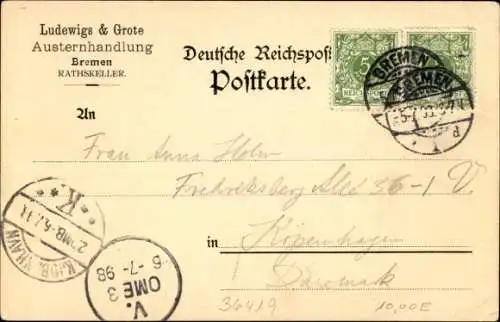 Ludewigs & Grote
Austernhandlung
Bremen
RATHSKELLER.
Deutsche Reichspost
Postkarte.
5
BREMEN
BREMEN
An
Frau Anna Holm
Frederiksberg Allé 36-1 V.
in Kopenhagen
Dänemark
K.
KJØBENHAVN
V.
OME 3
6-7-98
36419
10,00E